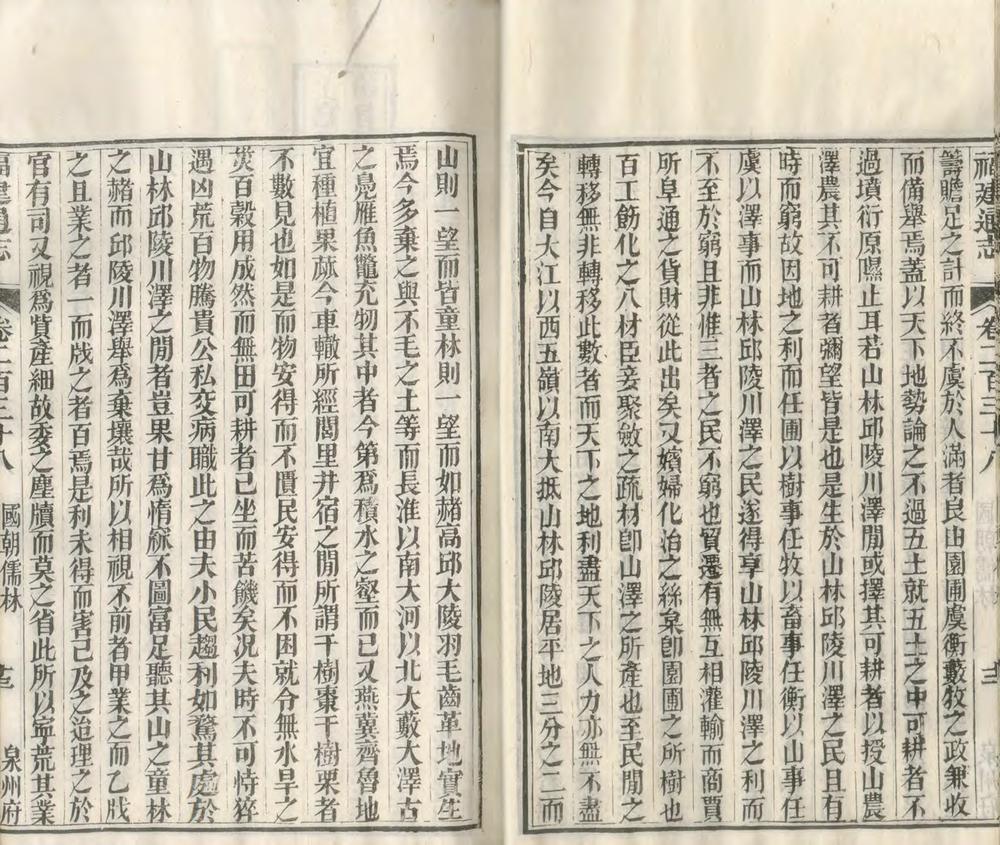 福建通志 卷二百三十八
籌贍足之計而終不虞於人滿者良由園圃虞衡藪牧之政兼收
而備舉焉蓋以天下地勢論之不過五土就五土之中可耕者不
過墳衍原隰止耳若山林邱陵川澤閒或擇其可耕者以授山農
澤農其不可耕者彌望皆是也是生於山林邱陵川澤之民且有
時而窮故因地之利而任圃以樹事任牧以畜事任衡以山事任
虞以澤事而山林邱陵川澤之民遂得享山林邱陵川澤之利而
不至於窮且非惟三者之民不窮也貿遷有無互相灌輸而商賈
所阜通之貨財從此出矣又嬪婦化治之絲枲卽園圃之所樹也
百工飭化之八材臣妾聚斂之疏材卽山澤之所產也至民閒之
轉移無非轉移此數者而天下之地利盡天下之人力亦無不盡
矣今自大江以西五嶺以南大抵山林邱陵居平地三分之二而
山則一望而皆童林則一望而如赭高邱大陵羽毛齒革地實生
焉今多棄之與不毛之土等而長淮以南大河以北大藪大澤古
之鳧雁魚鼈充牣其中者今第爲積水之壑而已又燕冀齊魯地
宜種植果蓏今車轍所經閭里井宿之閒所謂千樹棗千樹栗者
不數見也如是而物安得而不匱民安得而不困就令無水旱之
災百穀用成然而無田可耕者已坐而苦饑矣况夫時不可恃猝
遇凶荒百物騰貴公私交病職此之由夫小民趨利如騖其處於
山林邱陵川澤之閒者豈果甘爲惰窳不圖富足聽其山之童林
之赭而邱陵川澤舉爲棄壤哉所以相視不前者甲業之而乙戕
之且業之者一而戕之者百焉是利未得而害已及之治理之於
官有司又視爲貲產細故委之塵牘而莫之省此所以寧荒其業
福建通志 卷二百三十八 國朝儒林 泉州府